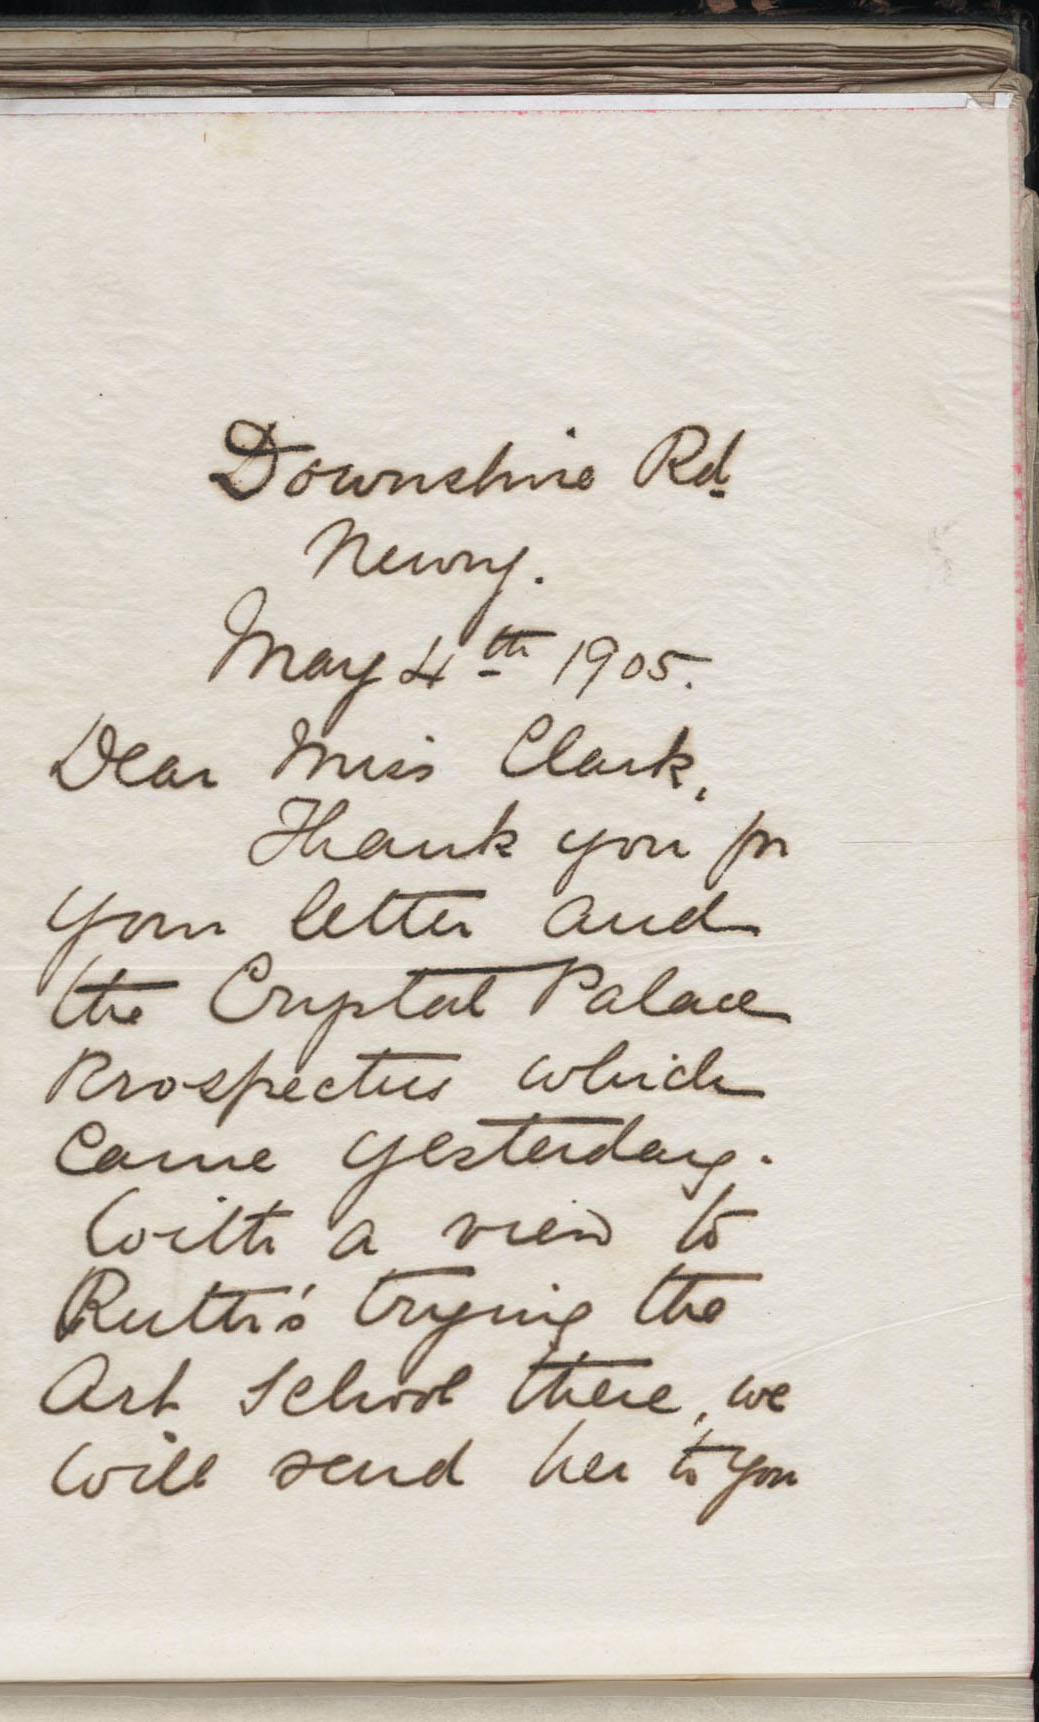 Downshire Rd.
Newry.
May 4th 1905.
Dear Miss Clark,
Thank you for
your letter and
the Crystal Palace
Prospectus which
came yesterday.
With a view to
Ruth's trying the
Art School there, we
will send her to you